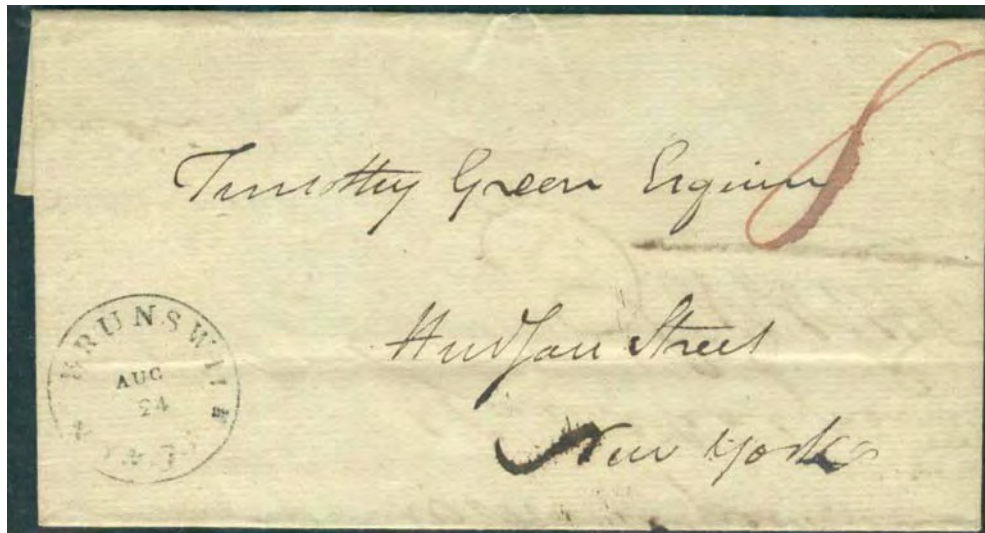 8
Timothy Green Esquire
Hudson Street
New York
BRUNSWI
AUG
24
N.J.